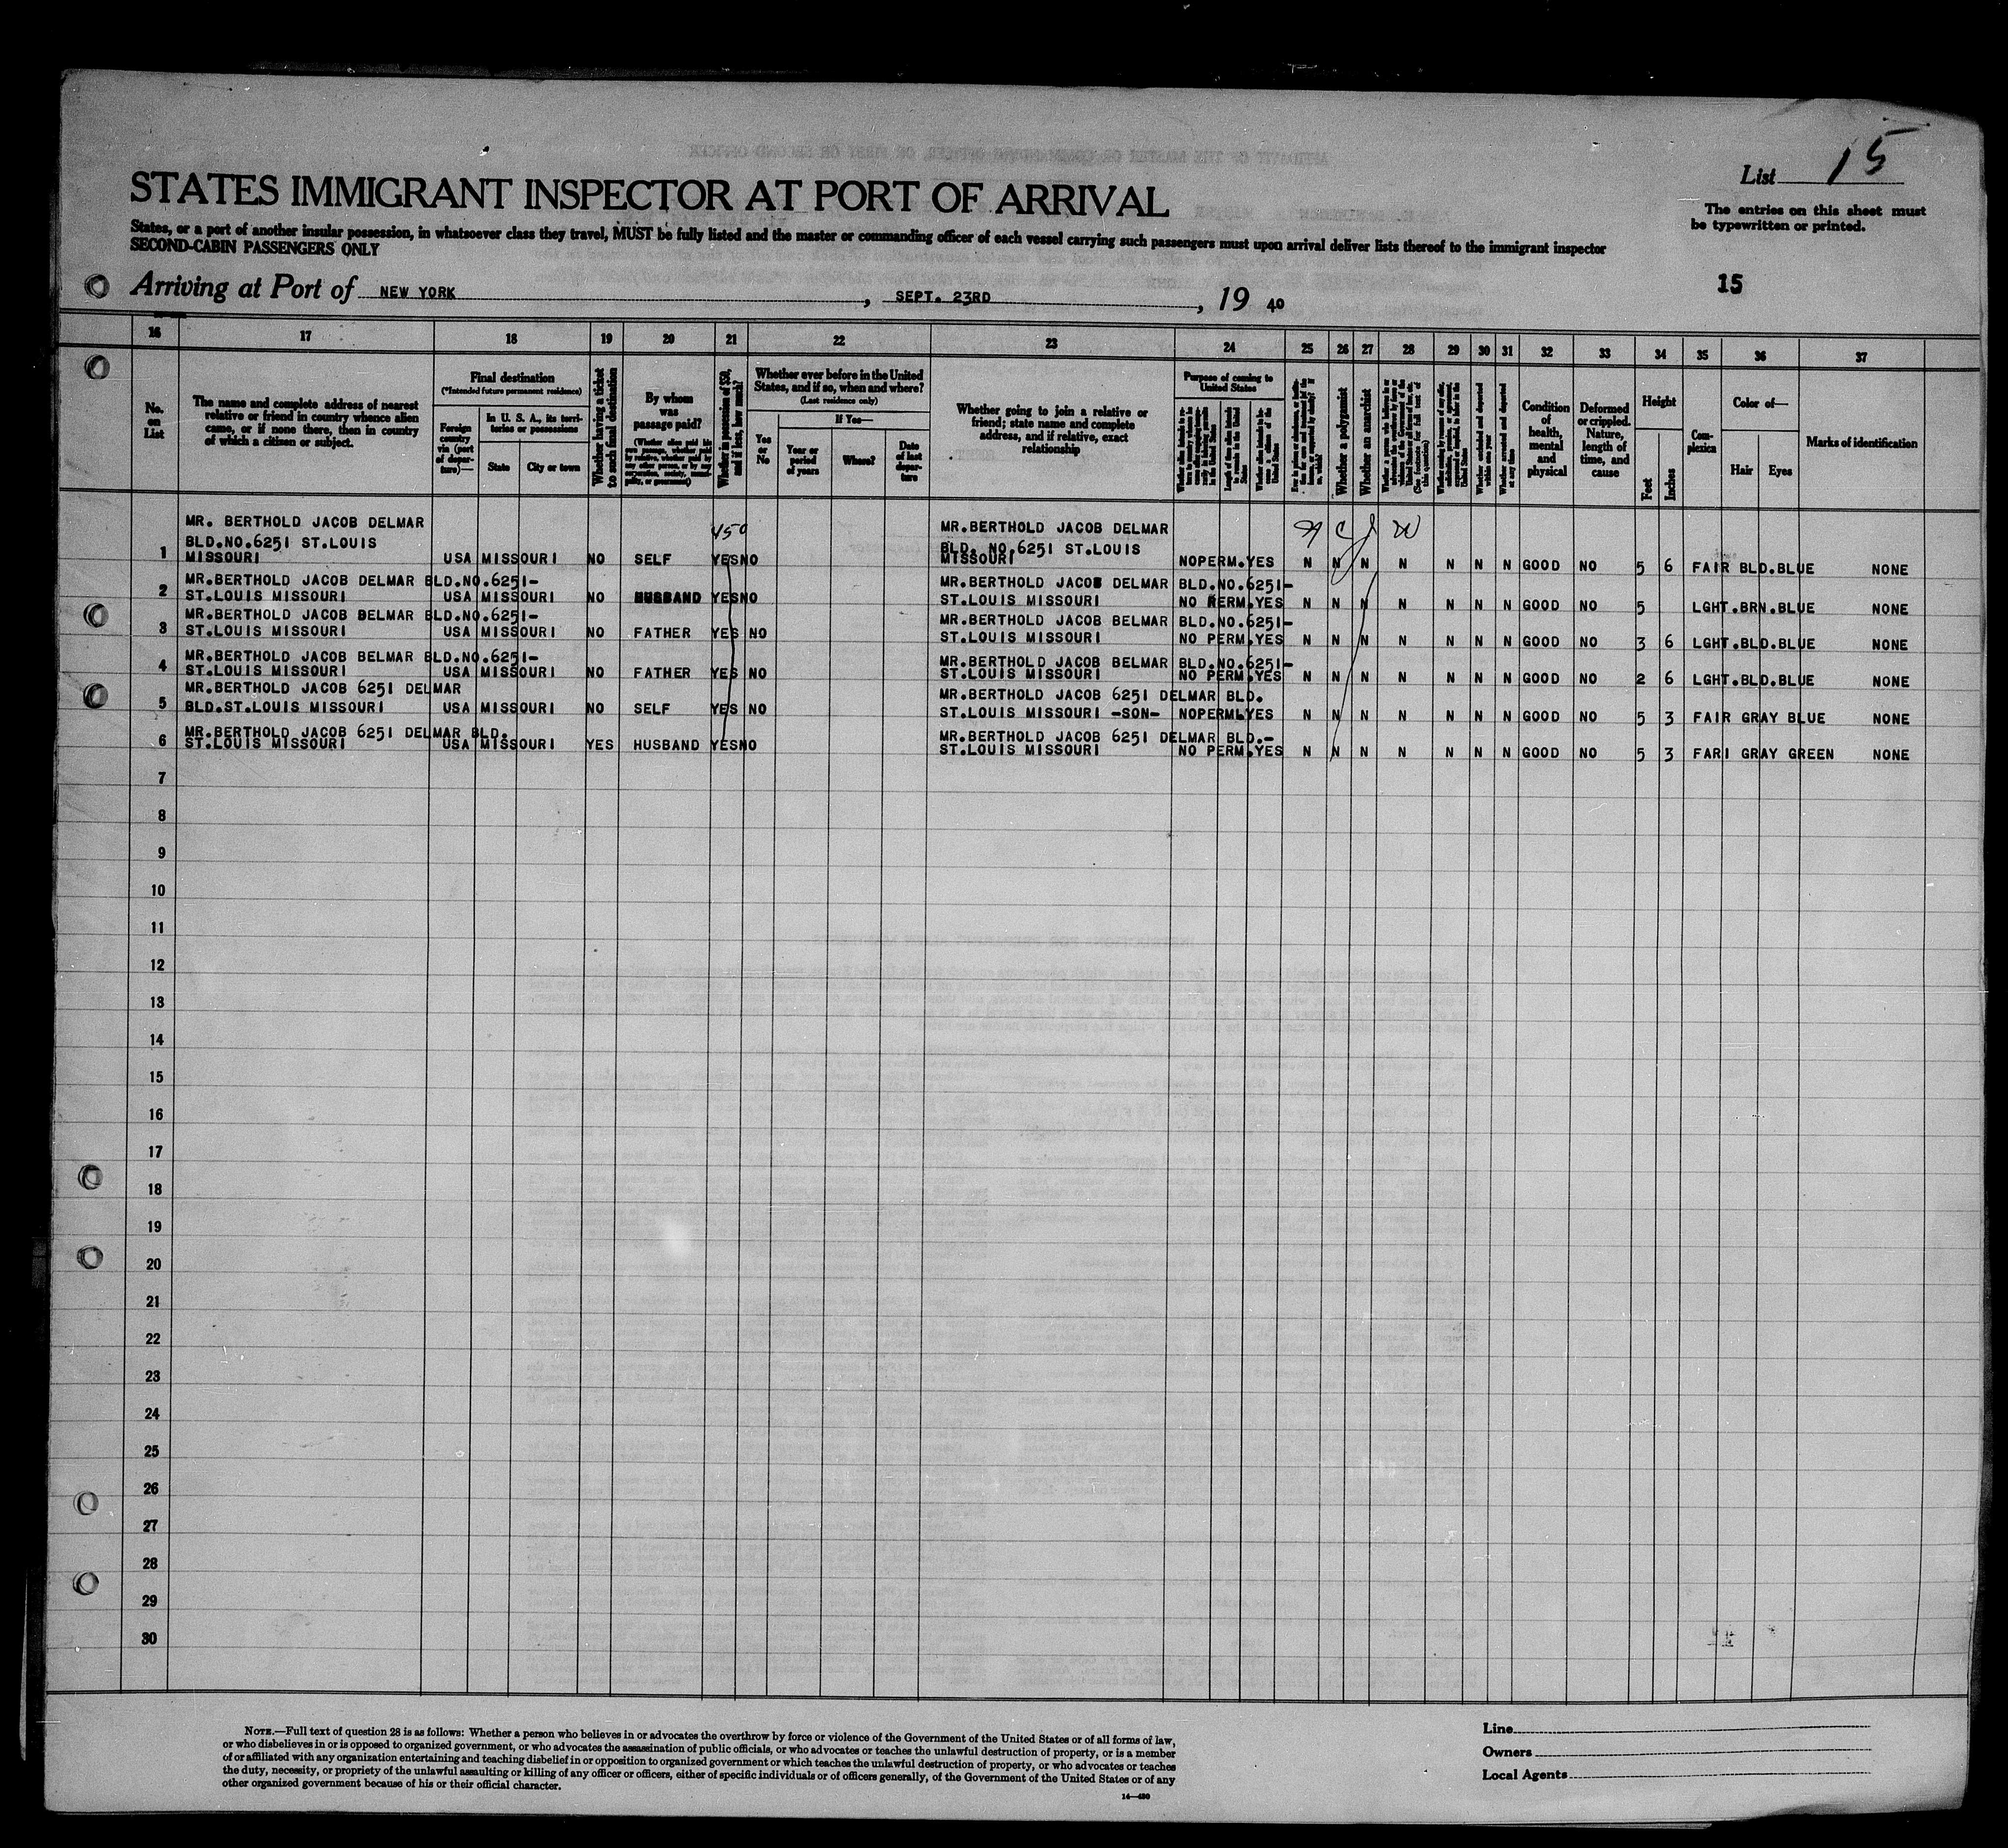 List 15
STATES IMMIGRANT INSPECTOR AT PORT OF ARRIVAL
The entries on this sheet must
be typewritten or printed.
States, or a port of another insular possession, in whatsoever class they travel, MUST be fully listed and the master or commanding officer of each vessel carrying such passengers must upon arrival deliver lists thereof to the immigrant inspector
SECOND-CABIN PASSENGERS ONLY
15
Arriving at Port of NEW YORK, SEPT. 23RD, 19 40
16 17 18 19 20 21 22 23 24 25 26 27 28 29 30 31 32 33 34 35 36 37
No. on List
The name and complete address of nearest
relative or friend in country whence alien
came, or if none there, then in country
of which a citizen or subject.
Final destination
(*Intended future permanent residence)
Foreign country via (port of departure)—
In U. S. A., its territories or possessions
State
City or town
Whether having a ticket to such final destination
By whom was passage paid?
Whether in possession of $50, and if less, how much?
Whether ever before in the United
States, and if so, when and where?
(Last residence only)
Yes or No
If Yes—
Year or period of years
Where?
Date of last departure
Whether going to join a relative or
friend; state name and complete
address, and if relative, exact
relationship
Purpose of coming to United States
Whether a polygamist
Whether an anarchist
(See footnote for full text of this question)
Whether excluded and deported within one year
Whether arrested and deported at any time
Condition of health, mental and physical
Deformed or crippled. Nature, length of time, and cause
Height
Feet
Inches
Complexion
Color of—
Hair
Eyes
Marks of identification
MR. BERTHOLD JACOB DELMAR 450 MR.BERTHOLD JACOB DELMAR
BLD.NO.6251 ST.LOUIS BLD. NO.6251 ST.LOUIS
1 MISSOURI USA MISSOURI NO SELF YES NO MISSOURI NO PERM. YES N N N N N N N GOOD NO 5 6 FAIR BLD. BLUE NONE
MR.BERTHOLD JACOB DELMAR BLD.NO.6251- MR.BERTHOLD JACOB DELMAR BLD.NO.6251-
2 ST.LOUIS MISSOURI USA MISSOURI NO HUSBAND YES NO ST.LOUIS MISSOURI NO PERM. YES N N N N N N N GOOD NO 5 LGHT. BRN. BLUE NONE
MR.BERTHOLD JACOB BELMAR BLD.NO.6251- MR.BERTHOLD JACOB BELMAR BLD.NO.6251-
3 ST.LOUIS MISSOURI USA MISSOURI NO FATHER YES NO ST.LOUIS MISSOURI NO PERM. YES N N N N N N N GOOD NO 3 6 LGHT. BLD. BLUE NONE
MR.BERTHOLD JACOB BELMAR BLD.NO.6251- MR.BERTHOLD JACOB BELMAR BLD.NO.6251-
4 ST.LOUIS MISSOURI USA MISSOURI NO FATHER YES NO ST.LOUIS MISSOURI NO PERM. YES N N N N N N N GOOD NO 2 6 LGHT. BLD. BLUE NONE
MR.BERTHOLD JACOB 6251 DELMAR MR.BERTHOLD JACOB 6251 DELMAR BLD.
5 BLD.ST.LOUIS MISSOURI USA MISSOURI NO SELF YES NO ST.LOUIS MISSOURI -SON- NO PERM. YES N N N N N N N GOOD NO 5 3 FAIR GRAY BLUE NONE
MR.BERTHOLD JACOB 6251 DELMAR BLD. MR.BERTHOLD JACOB 6251 DELMAR BLD.-
6 ST.LOUIS MISSOURI USA MISSOURI YES HUSBAND YES NO ST.LOUIS MISSOURI NO PERM. YES N N N N N N N GOOD NO 5 3 FARI GRAY GREEN NONE
7
8
9
10
11
12
13
14
15
16
17
18
19
20
21
22
23
24
25
26
27
28
29
30
NOTE.—Full text of question 28 is as follows: Whether a person who believes in or advocates the overthrow by force or violence of the Government of the United States or of all forms of law,
or who disbelieves in or is opposed to organized government, or who advocates the assassination of public officials, or who advocates or teaches the unlawful destruction of property, or is a member
of or affiliated with any organization entertaining and teaching disbelief in or opposition to organized government or which teaches the unlawful destruction of property, or who advocates or teaches
the duty, necessity, or propriety of the unlawful assaulting or killing of any officer or officers, either of specific individuals or of officers generally, of the Government of the United States or of any
other organized government because of his or their official character.
14—480
Line
Owners
Local Agents